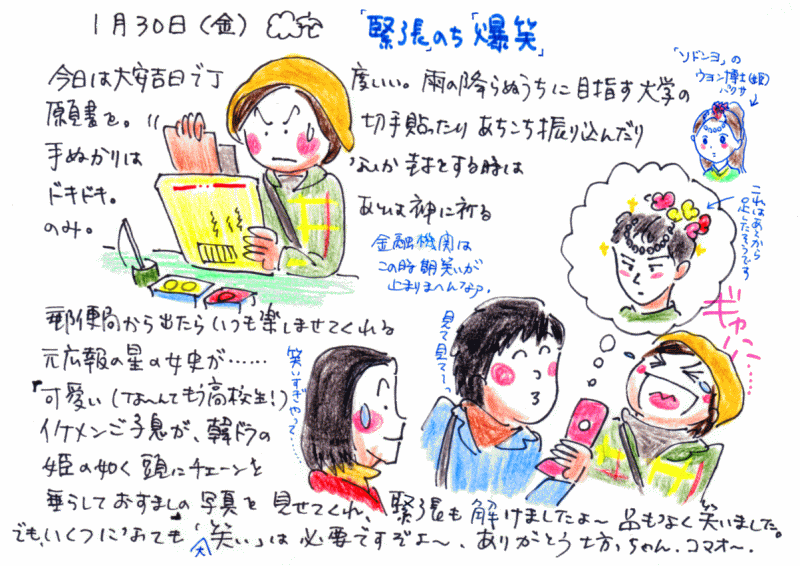 1月30日(金)
「緊張」のち「爆笑」
今日は大安吉日で丁度いい。雨の降らぬうちに目指す大学の
願書を。切手貼ったりあちこち振り込んだり
手ぬかりは
ドキドキ。
のみ。
する時は
あとは神に祈る
金融機関は
この時期笑いが
止まりまへんなァ。
「ソドンヨ」の
ウヨン博士(姫)
これはあとから
足したそうです
ギャハハ……
見て見てーっ
笑いすぎやって……
郵便局から出たらいつも楽しませてくれる
元広報の星の女史が……
可愛い(なーんてもう高校生!)
イケメンご子息が、韓ドラの
姫の如く頭にチェーンを
垂らしておすましの写真を見せてくれ、緊張も解けましたよ〜品もなく笑いました。
でも、いくつになっても「大笑い」は必要ですぞよ〜、ありがとう坊っちゃん、コマオ〜。